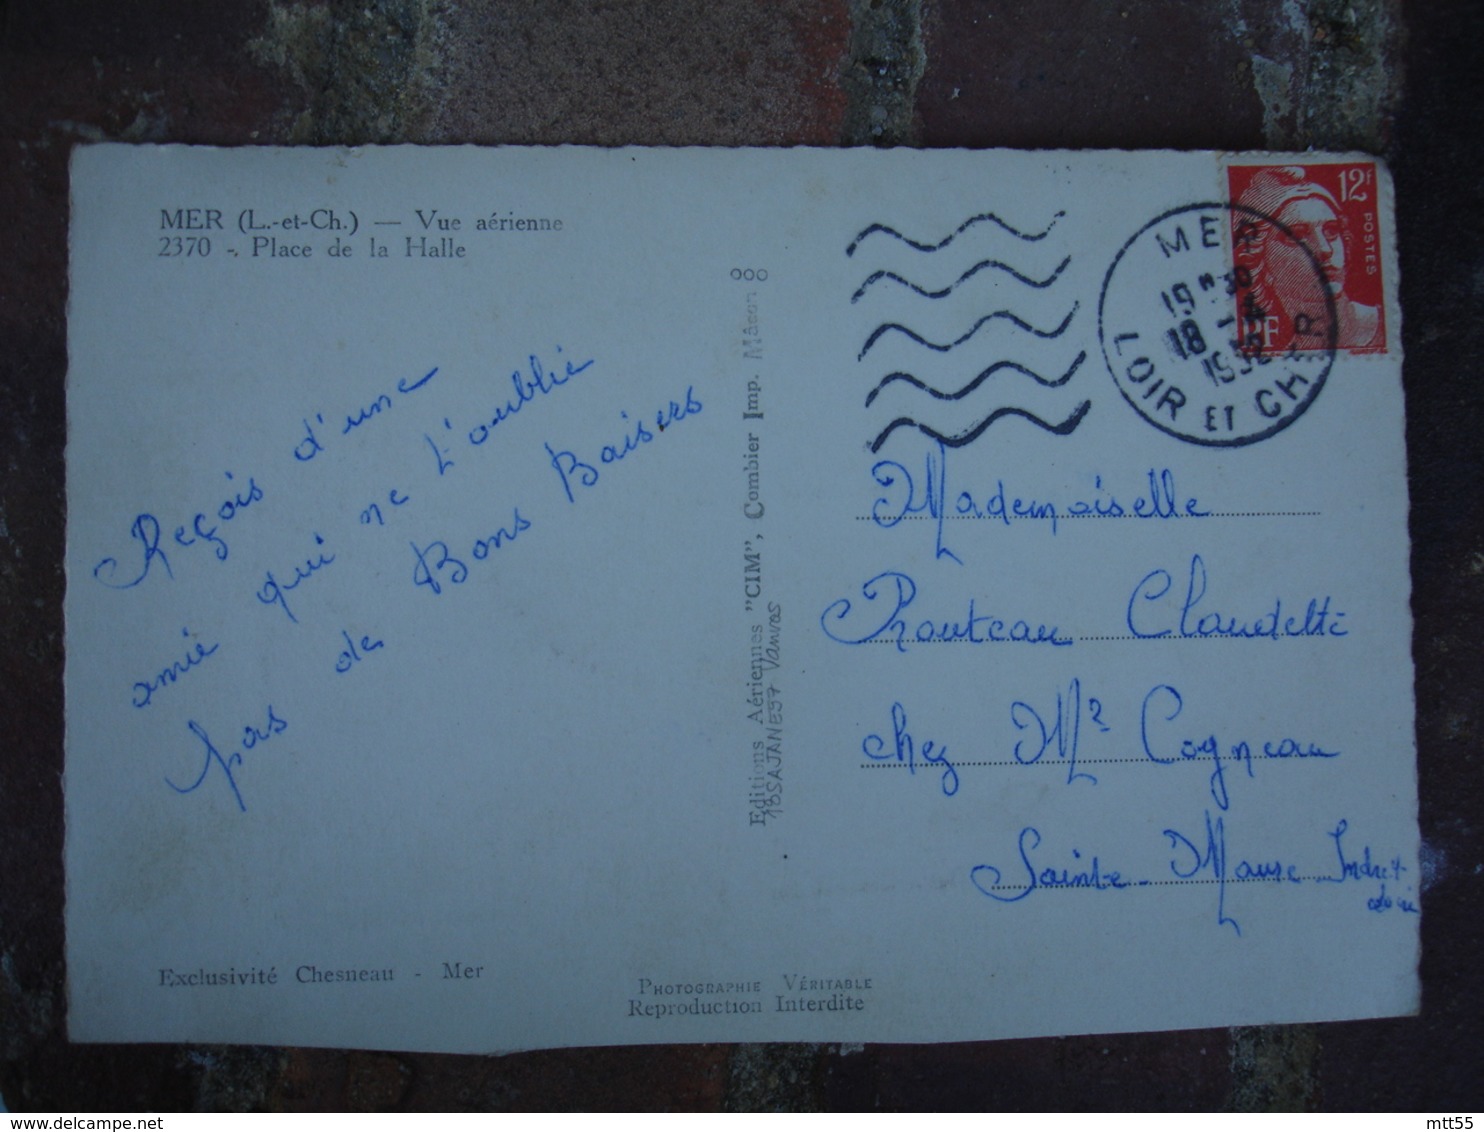 MER (L.-et-Ch.) — Vue aérienne
2370 -. Place de la Halle
Reçois d'une
amie qui ne t'oublie
pas de Bons Baisers
Exclusivité Chesneau - Mer
Editions Aériennes "CIM", Combier Imp. Mâcon
PHOTOGRAPHIE VÉRITABLE
Reproduction Interdite
MER
18 -4
1952
LOIR ET CHER
12F
POSTES
RF
Mademoiselle
Prouteau Claudette
chez Mr Cogneau
Sainte-Maure Indre et
Loire
mtt55